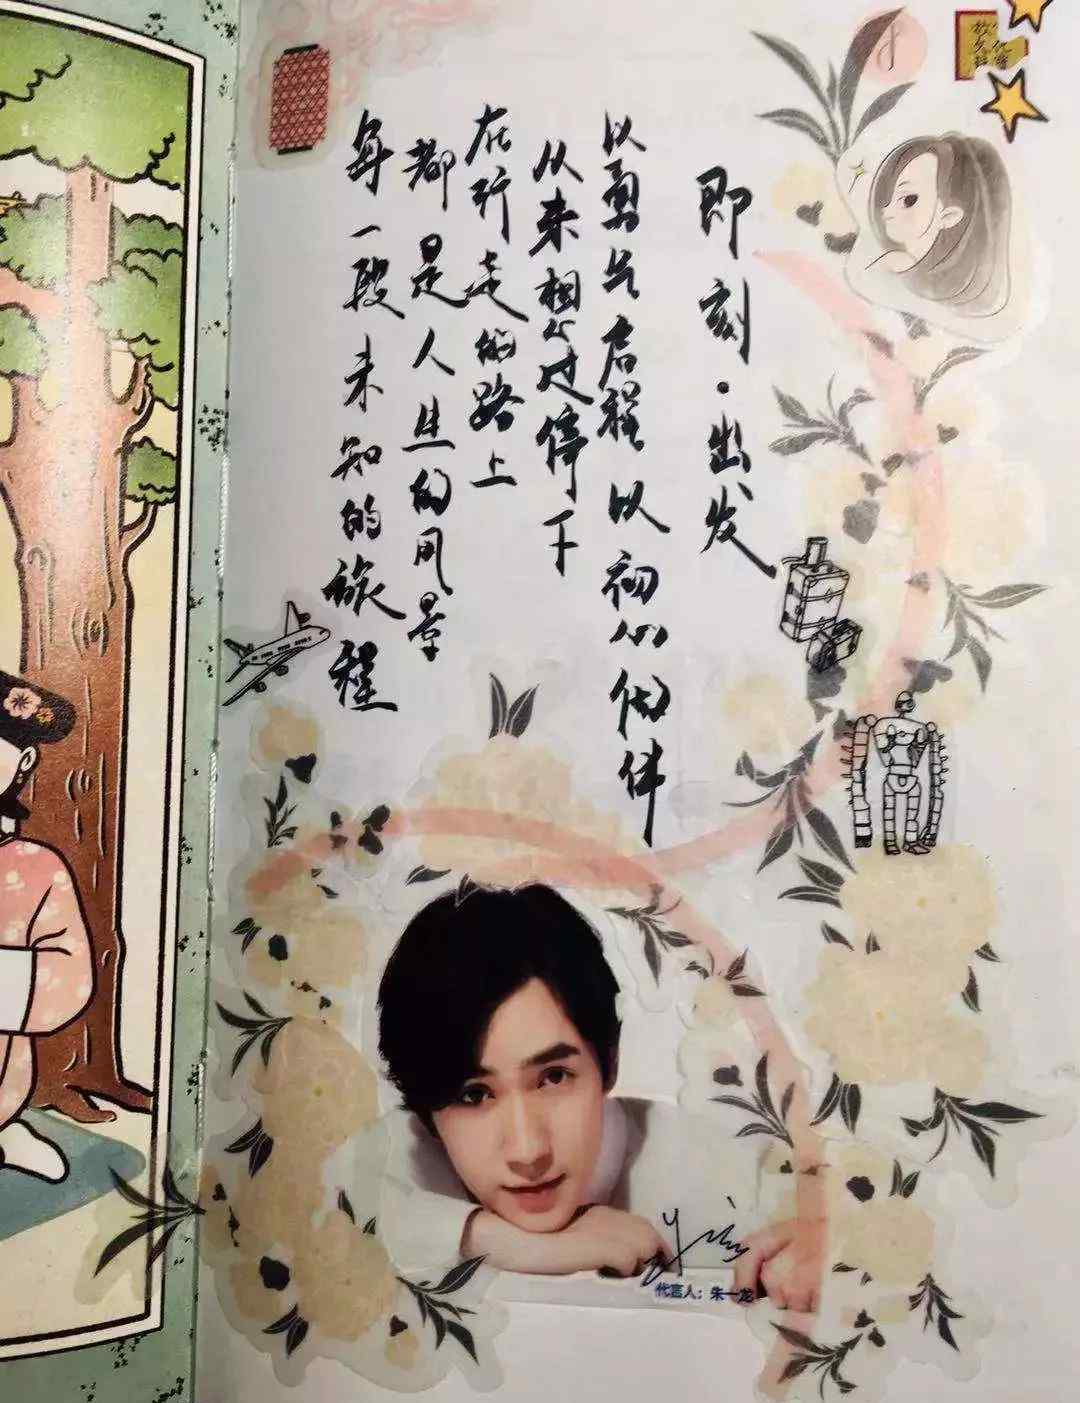 即刻·出发
以勇气启程 以初心做伴
从未想过停下
在所走的路上
都是人生的风景
每一段未知的旅程
代言人：朱一龙